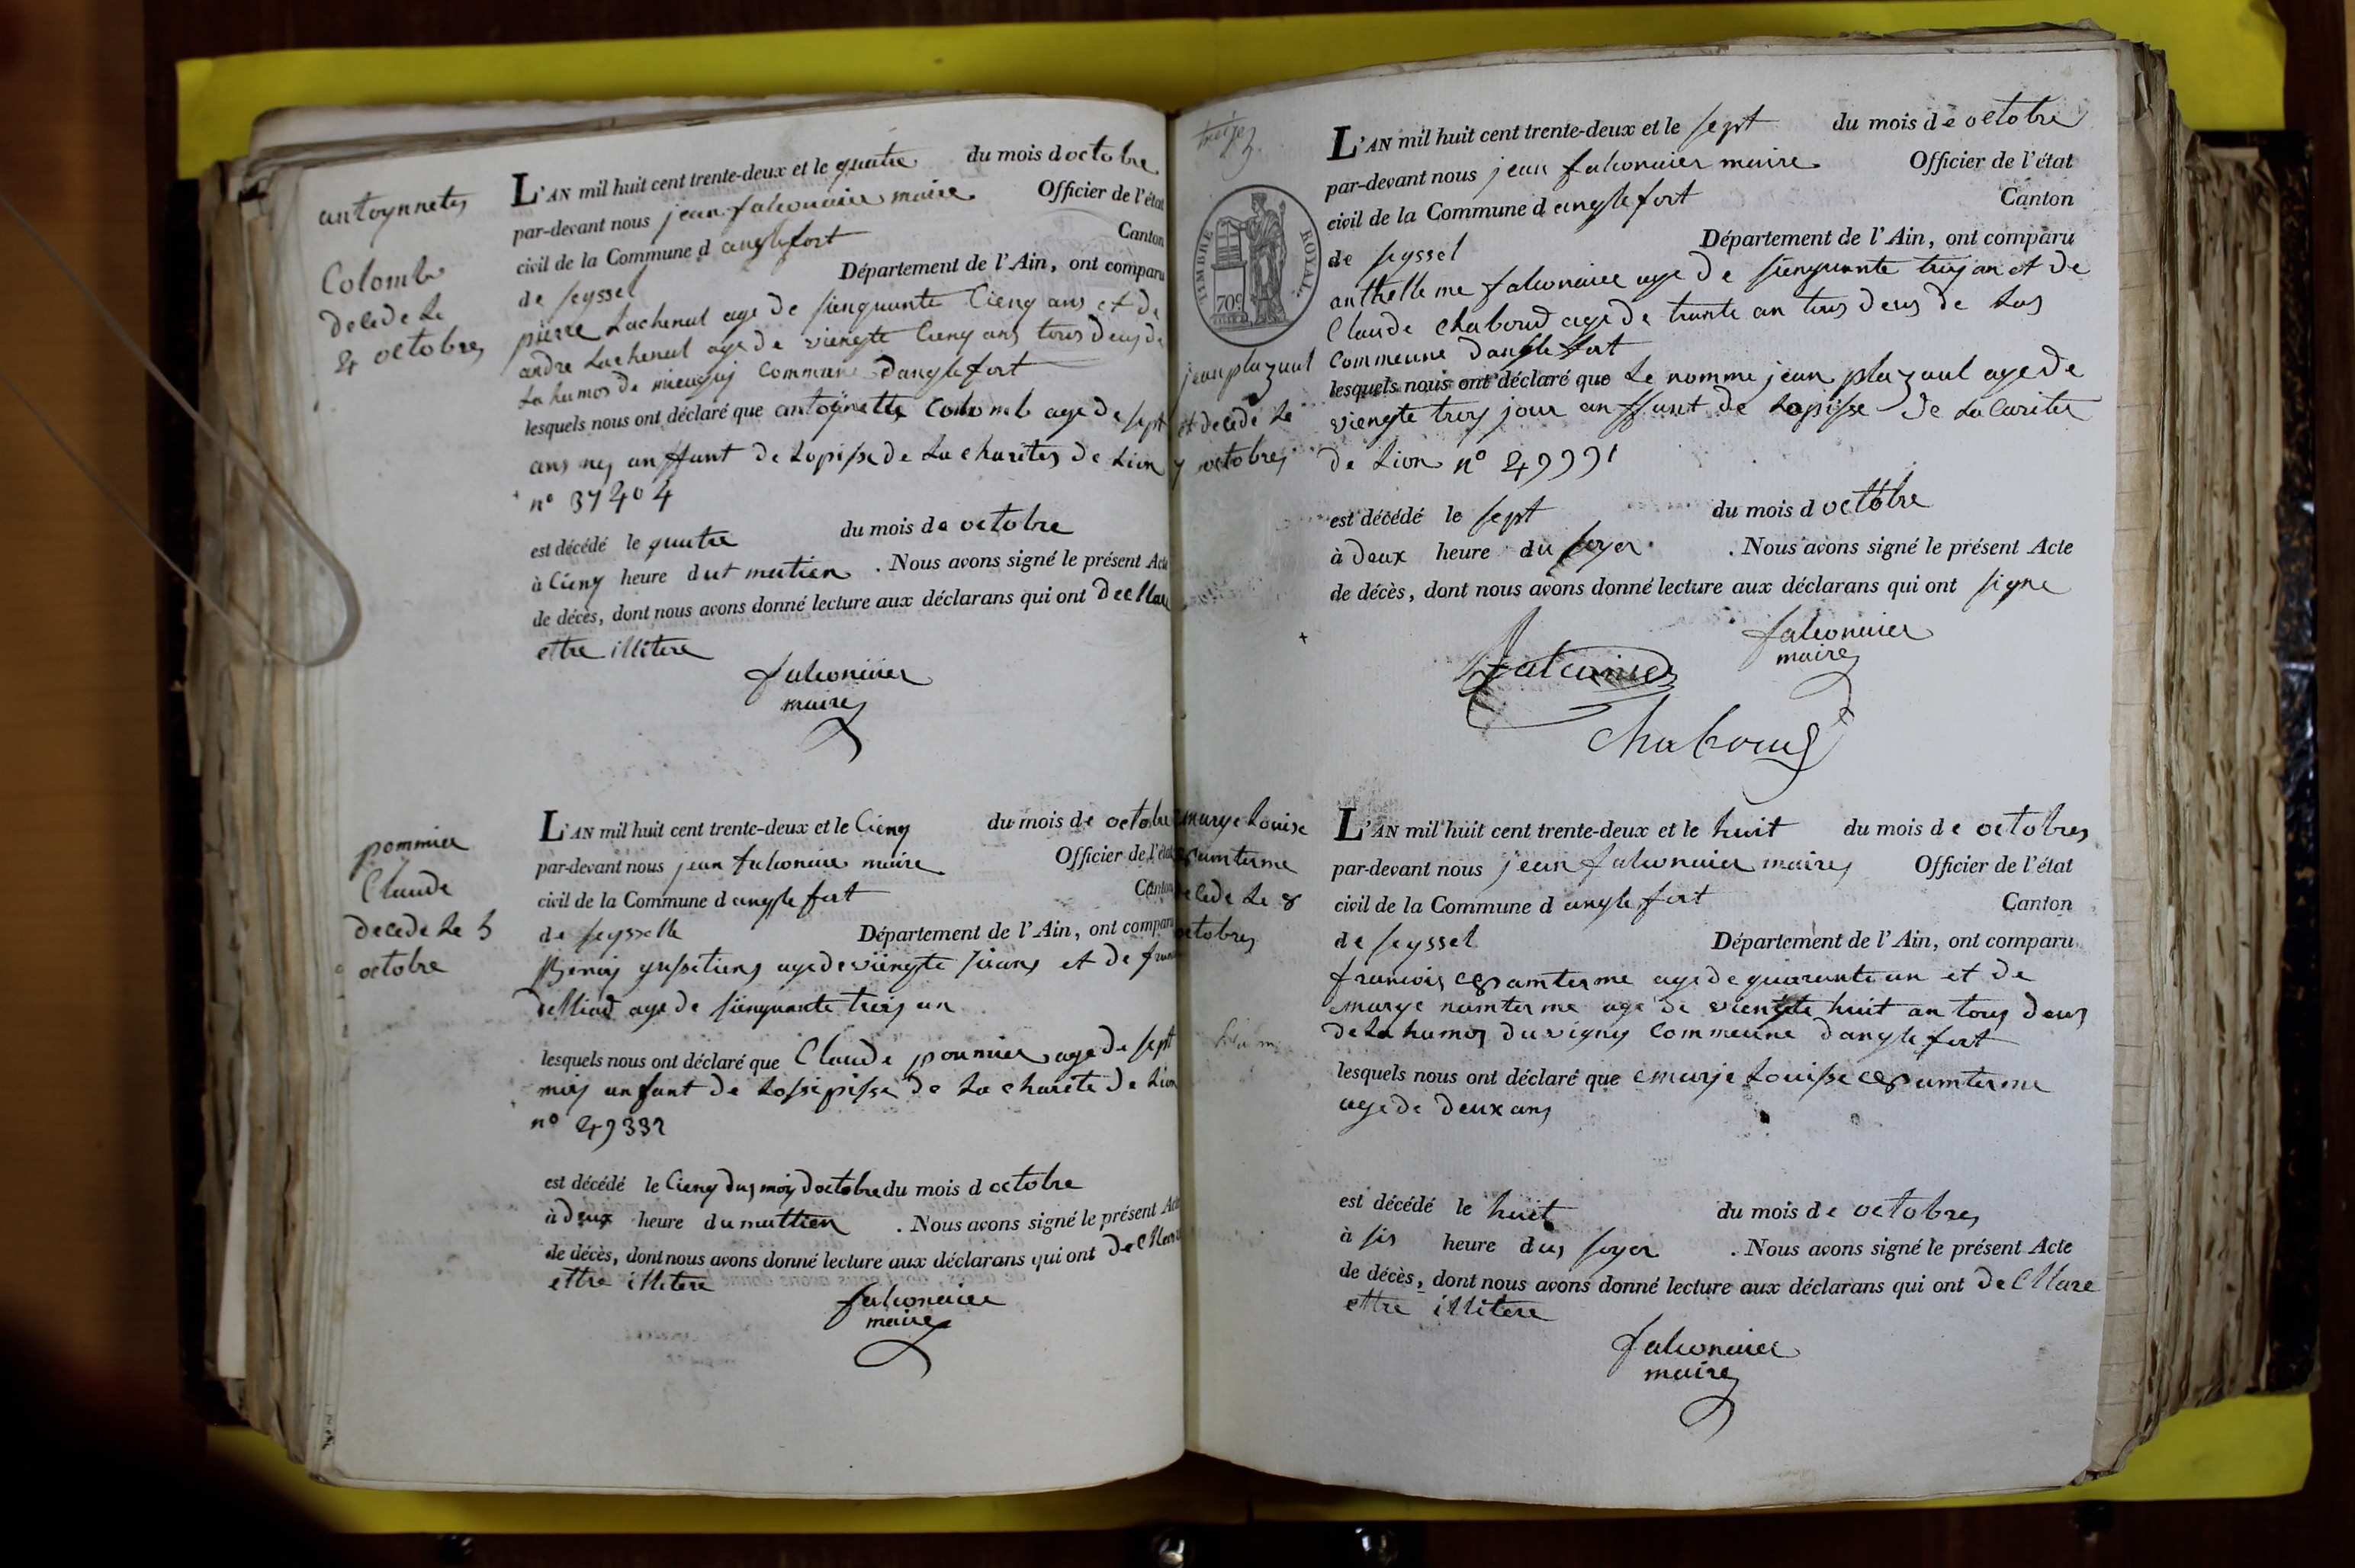 antoynnetes
Colomb
decede le
4 octobres
L'AN mil huit cent trente-deux et le quatre du mois d octobre
par-devant nous jean falconnier maire Officier de l'état
civil de la Commune d anglefort Canton
de seyssel Département de l'Ain, ont comparu
pierre Lachenal age de sienquante Cienq ans et de
andre Lachenal age de viengte Cienq ans tous deus de
La humos de mieugej Commune danglefort
lesquels nous ont déclaré que antoynette Colomb age de sept
ans nes anffant de Lopisse de La charites de Lion
n° 37404
est décédé le quatre du mois de octobre
à Cienq heure dut matien . Nous avons signé le présent Acte
de décès, dont nous avons donné lecture aux déclarans qui ont decllare
ettre illitere
falconnier
maire
pommier
Claude
decede le 5
octobre
L'AN mil huit cent trente-deux et le Cienq du mois de octobre
par-devant nous jean falconnier maire Officier de l'état
civil de la Commune d anglefort Canton
de seysselle Département de l'Ain, ont comparu
Benoy age de viengte sisans et de
age de sienquante trois an
lesquels nous ont déclaré que Claude pommier age de sept
mois anfant de Lossipisse de La charite de Lion
n° 49332
est décédé le Cienq dus moy doctobre du mois d octobre
à deux heure du mattien . Nous avons signé le présent Acte
de décès, dont nous avons donné lecture aux déclarans qui ont decllare
ettre illitere
falconnier
maire
TIMBRE ROYAL
70c
jean plazaul
et decede le
7 octobres
L'AN mil huit cent trente-deux et le sept du mois de octobre
par-devant nous jean falconnier maire Officier de l'état
civil de la Commune d anglefort Canton
de seyssel Département de l'Ain, ont comparu
anthellme falconnier age de sienquante troy an et de
Claude Chaboud age de trante an tous deus de Las
Commeune danglefort
lesquels nous ont déclaré que Le nomme jean plazaul age de
viengte troy jour anffant de Lopisse de La Carites
de Lion n° 49991
est décédé le sept du mois d octobre
à deux heure du soyer . Nous avons signé le présent Acte
de décès, dont nous avons donné lecture aux déclarans qui ont signe
falconnier
maire
falconnier
Chaboud
marye Louise
decede le 8
octobres
L'AN mil huit cent trente-deux et le huit du mois de octobres
par-devant nous jean falconnier maire Officier de l'état
civil de la Commune d anglefort Canton
de seyssel Département de l'Ain, ont comparu
francois age de quarante an et de
marye namterme age de viengte huit an tous deus
de La humos du vigny Commeune danglefort
lesquels nous ont déclaré que marje Louisse
age de deux ans
est décédé le huit du mois de octobres
à sis heure dus soyer . Nous avons signé le présent Acte
de décès, dont nous avons donné lecture aux déclarans qui ont decllare
ettre illitere
falconnier
maire